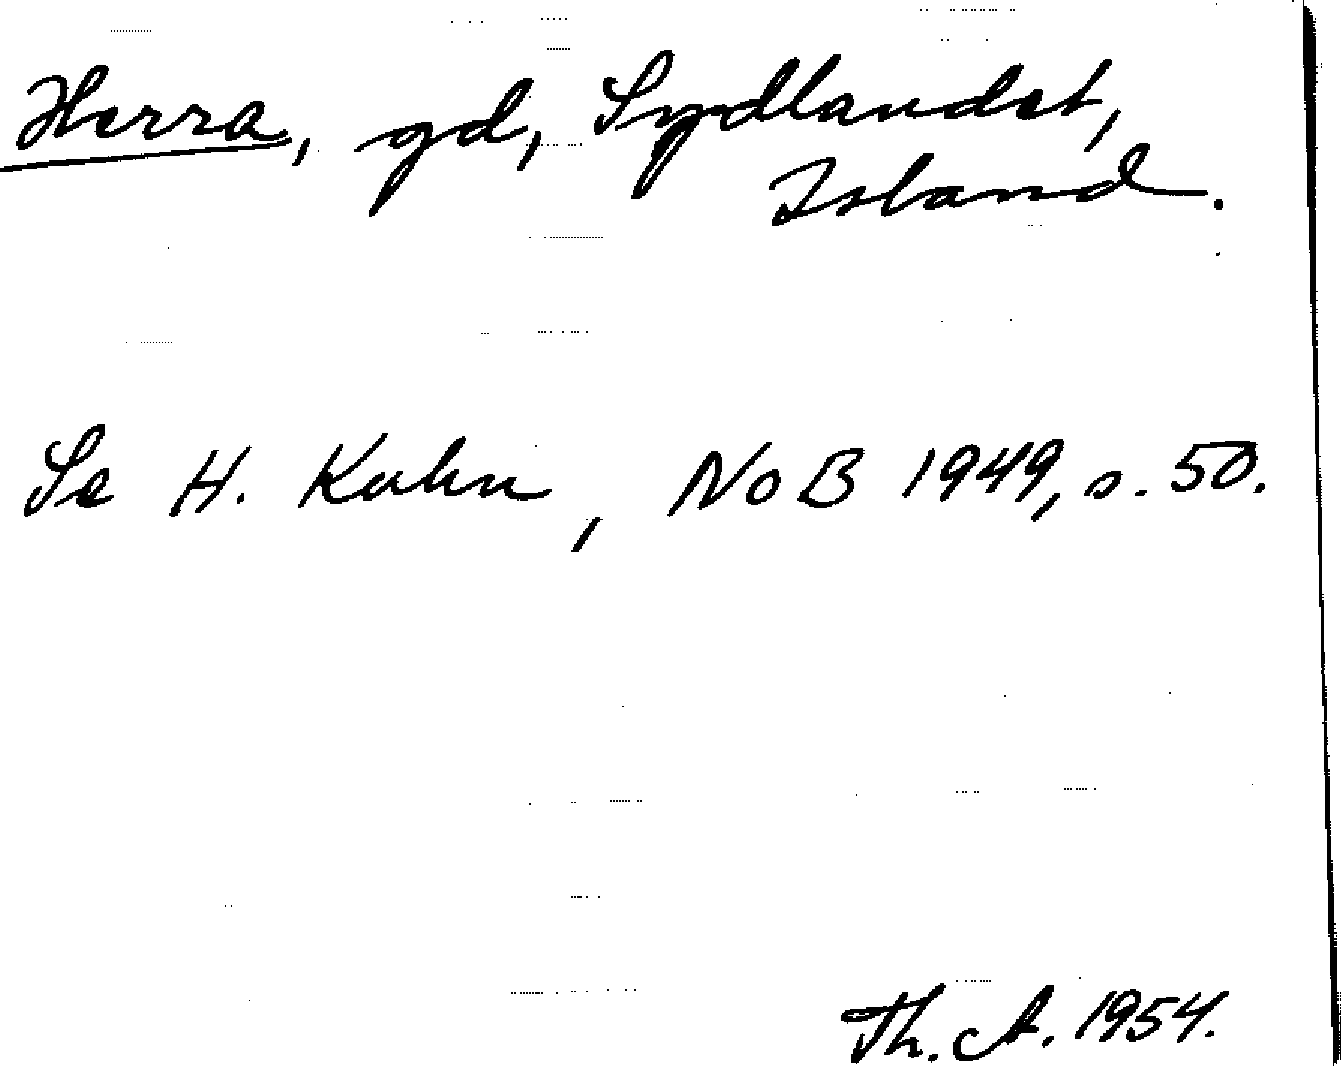 Herra, gd, Sydlandet,
Island.
Se H. Kuhn, NoB 1949, s. 50.
Th. A. 1954.